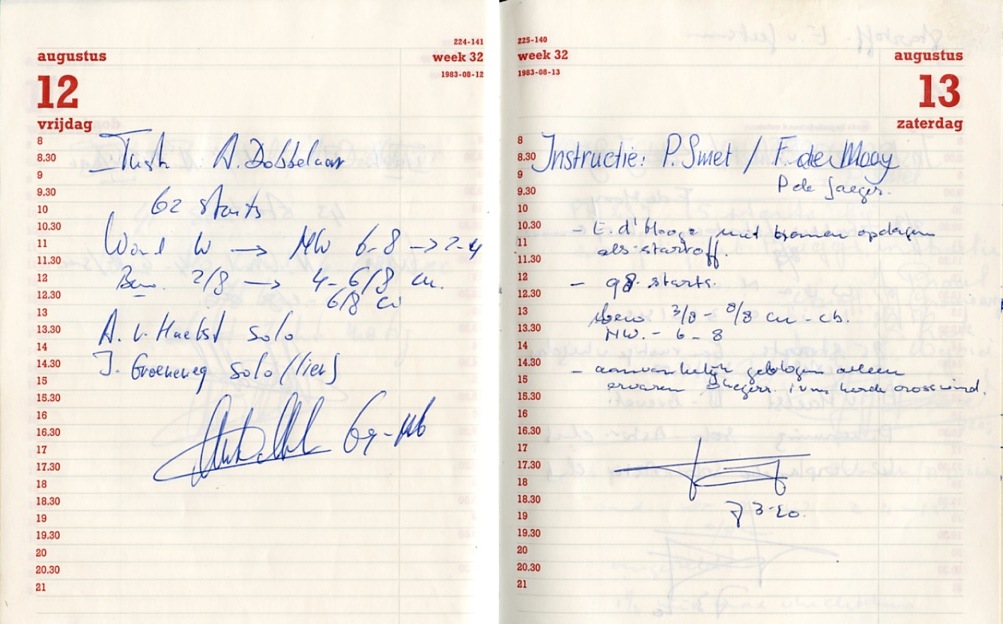 224-141
augustus
week 32
1983-08-12
12
vrijdag
8
8.30
9
9.30
10
10.30
11
11.30
12
12.30
13
13.30
14
14.30
15
15.30
16
16.30
17
17.30
18
18.30
19
19.30
20
20.30
21
A. Dobbelaar
62 starts
W → NW 6-8 → 2-4
Bew. 2/8 → 4-6/8 cu.
6/8 cu
A. v. Haelst solo
J. Groeneweg solo (lier)
225-140
week 32
1983-08-13
augustus
13
zaterdag
8
8.30
9
9.30
10
10.30
11
11.30
12
12.30
13
13.30
14
14.30
15
15.30
16
16.30
17
17.30
18
18.30
19
19.30
20
20.30
21
Instructie: P. Smet / F. de Mooy
P de Jaeger.
- E. d'Hooge met
als startoff.
- 98 starts.
bew 3/8 - 8/8 cu - cb.
NW. - 6 - 8
- aanvankelijk gevlogen alleen
ervaren vliegers i.v.m. harde crosswind.